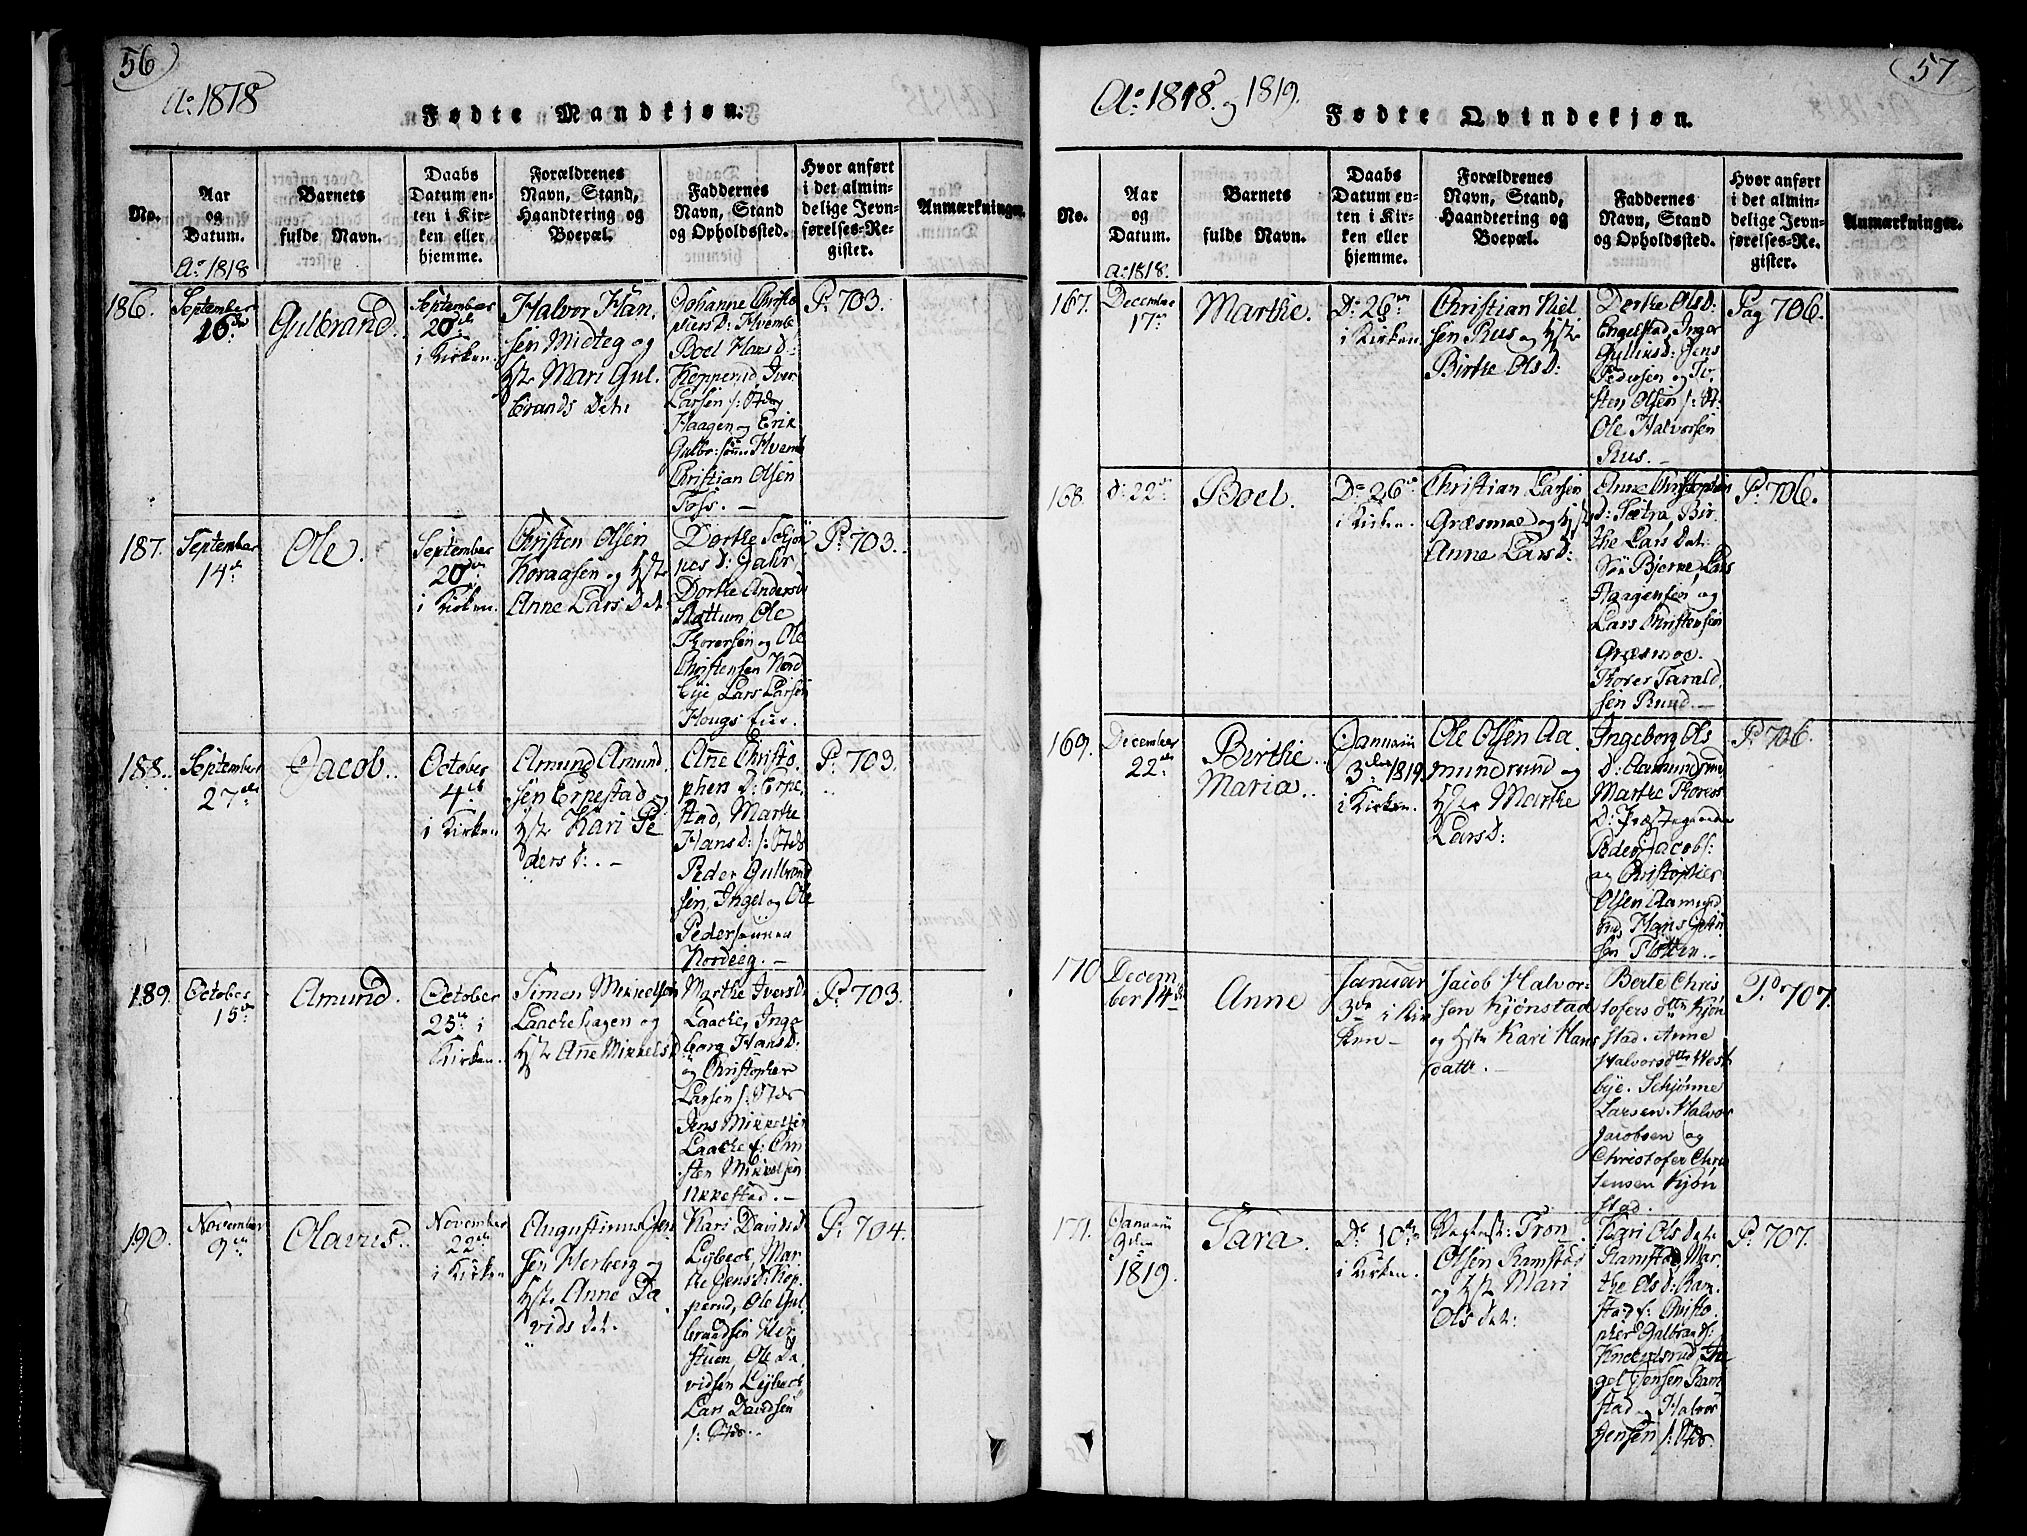 56
Ao 1818
Fødte Mandkjøn.
No.
Aar
og
Datum.
Barnets
fulde Navn.
Daabs
Datum en-
ten i Kir-
ken eller
hjemme.
Forældrenes
Navn, Stand,
Haandtering og
Boepæl.
Faddernes
Navn, Stand
og Opholdssted.
Hvor anført
i det almin-
delige Jevn-
førelses-Re-
gister.
Anmærkninger.
Ao 1818
186.
September
16de
Gulbrand.
September
20de
i Kirken.
Halvor Han
sen Midteg og
Hst: Mari Gul.
brands Dat:
Johanne Christo
phers D: Hvemb
Boel Hans d:
Kopperud, Iver
Larsen
Haagen og Erik
Gulbr: Hvemb
Christian Olsen
Foss. –
P: 703.
187.
September
14de
Ole.
September
20de
i Kirken.
Christen Olsen
Koraasen og Hst:
Anne Lars Dat.
Dorthe
D: Jahr
Dorthe Andersd
Ole
Thorersen og Ole
Christensen Nord
Lars Larsen
P: 703.
188.
September
27de
Jacob.
October
4de
i Kirken
Amund Amund.
sen Erpestad og
Hst: Kari Pe
ders d: . –
Anne Christo
phers D: Erpe
stad, Marthe
Hans d:
Peder Gulbrand
sen, Ingel og Ole
Pedersønner
Nordeeg. –
P: 703.
189.
October
15de
Amund.
October
25de i
Kirken.
Simen Mikkelsen
Laachehagen og
Hst: Anne Mikkelsd
Marthe Ivers D:
Laache, Inge
borg Hans D:
og Christopher
Larsen
Jens Mikkelsen
Laache Chri
sten Mikkelsen
Ukkestad. –
P: 703.
190.
November
9de
Olavus.
November
22de
i Kirken
Augustinus Jen
sen Herberg og
Hst: Anne Da
vids Dat.
Kari Davids d
Lejbeck, Mar
the Jens d: Kop
perud, Ole Gul
brandsen Her
stuen, Ole Da
vidsen Lejbeck
Lars Davidsen
P: 704.
57
Ao 1818. og 1819.
Fødte Qvindekjøn.
No.
Aar
og
Datum.
Barnets
fulde Navn.
Daabs
Datum en-
ten i Kir-
ken eller
hjemme.
Forældrenes
Navn, Stand,
Haandtering og
Boepæl.
Faddernes
Navn, Stand
og Opholdssted.
Hvor anført
i det almin-
delige Jevn-
førelses-Re-
gister.
Anmærkninger.
Ao 1818.
167.
December
17de
Marthe.
D: 26de
i Kirken
Christian Niel
sen Rus og Hst:
Birthe Ols D:
Dorthe Ols d:
Engelstad, Inger
Jens
Pedersen og
sten Olsen
Ole Halvorsen
Rus. –
Pag 706.
168.
d: 22de
Boel.
D: 26de
i Kirken.
Christian Larsen
Græsmoe og Hst:
Anne Lars D:
Anne Christophers
D: Sætra Bir
the Lars Dat:
Bjerne, Lars
Haagensen og
Lars Christensen
Græsmoe.
Thorer Tarald
sen Rund. –
P: 706.
169.
December
22de
Birthe
Maria.
Januarii
3die 1819
i Kirken.
Ole Olsen Aa
mundrund og
Hst: Marthe
Lars D:
Ingeborg Ols
D: Aamundrund
Marthe Thorers
D: Præstegaarden
Peder Jacobs:
og Christopher
Olsen Aamund
rud, Hans
sen Flotten. –
P: 706.
170
Decem-
ber 14de
Anne
Januar
3de i Kir
ken –
Jacob Halvor-
sen Kjønstad
og Hst: Kari Hans
datter. –
Berte Chris
tofers dtr Kjøn
stad. Anne
Halvors dtr West
bye. Schjønne
Larsen. Halvor
Jacobsen og
Christofer Chri
Jensen Kjøn
stad.
P: 707.
171.
Januarii
1819.
Sara.
D: 10de
i Kirken.
Tron
Olsen Ramstad
og Hst: Mari
Ols Dat:
Kari Ols Dat:
Ramstad, Mar
the Ols D: Ram
stad Christo
pher Gulbrands:
Knetelsrud, In
gel Jensen Ram
stad og Halvor
Jensen
P: 707.